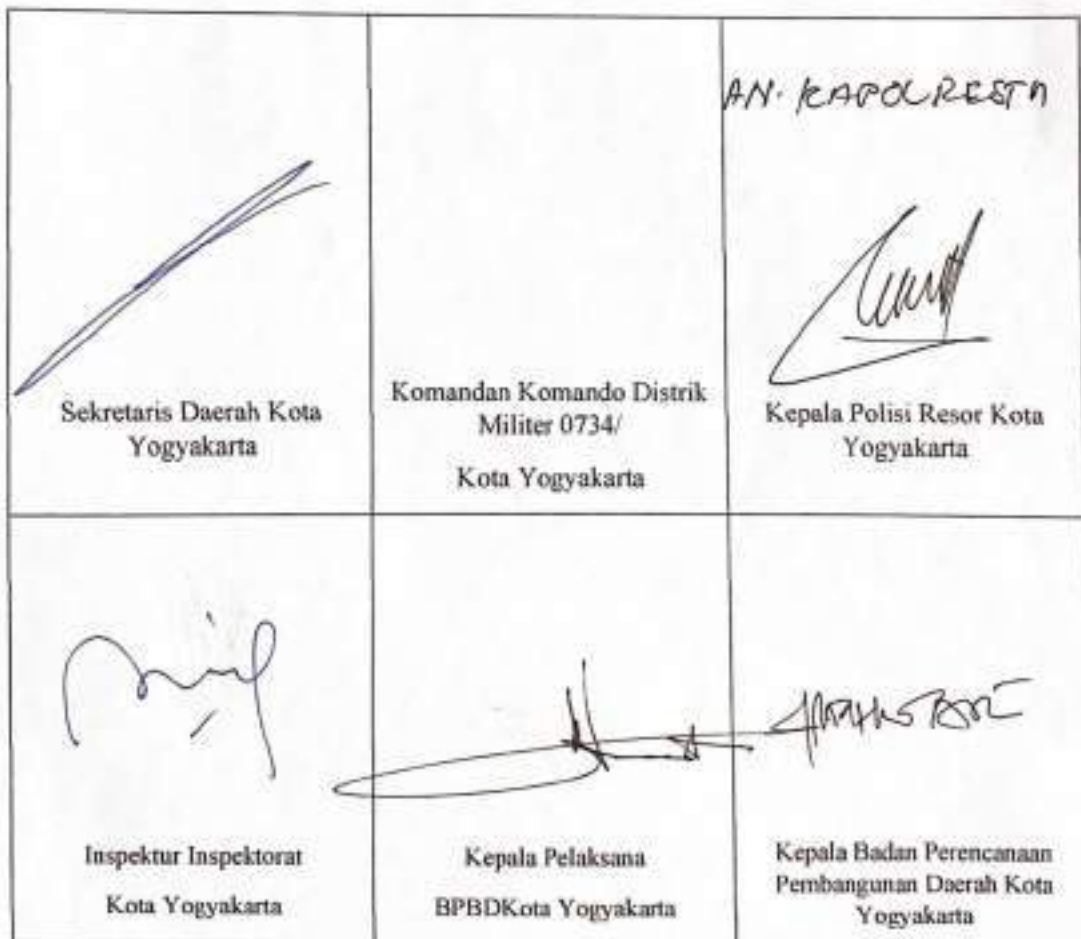 AN. KAPOLRESTA
Sekretaris Daerah Kota
Yogyakarta
Komandan Komando Distrik
Militer 0734/
Kota Yogyakarta
Kepala Polisi Resor Kota
Yogyakarta
Inspektur Inspektorat
Kota Yogyakarta
Kepala Pelaksana
BPBDKota Yogyakarta
Kepala Badan Perencanaan
Pembangunan Daerah Kota
Yogyakarta